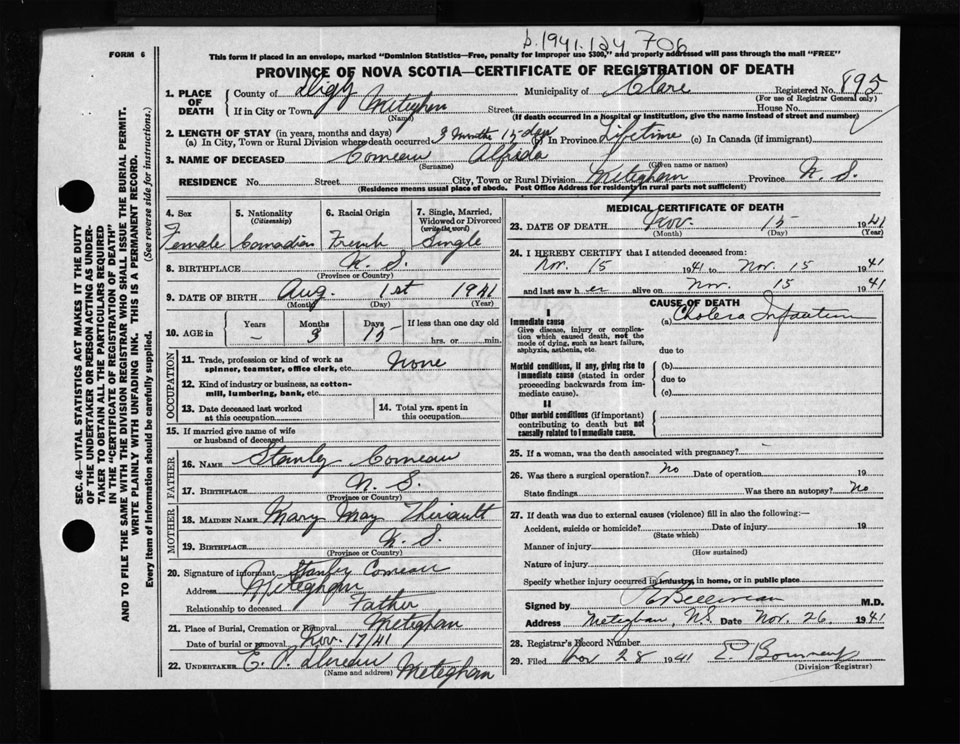 b.1941.124 706
FORM 6
This form if placed in an envelope, marked "Dominion Statistics—Free, penalty for improper use $300," and properly addressed will pass through the mail "FREE"
PROVINCE OF NOVA SCOTIA—CERTIFICATE OF REGISTRATION OF DEATH
1. PLACE OF DEATH County of Digby Municipality of Clare Registered No. 895
(For use of Registrar General only)
If in City or Town Meteghan Street House No.
(Name) (If death occurred in a Hospital or Institution, give the name instead of street and number)
2. LENGTH OF STAY (in years, months and days)
(a) In City, Town or Rural Division where death occurred 3 Months 15 day (b) In Province Lifetime (c) In Canada (if immigrant)
3. NAME OF DECEASED Comeau Alfrida
(Surname) (Given name or names)
RESIDENCE No. Street City, Town or Rural Division Meteghan Province N. S.
(Residence means usual place of abode. Post Office Address for residents in rural parts not sufficient)
4. Sex Female
5. Nationality (Citizenship) Canadian
6. Racial Origin French
7. Single, Married, Widowed or Divorced (write the word) Single
8. BIRTHPLACE N. S.
(Province or Country)
9. DATE OF BIRTH Aug. 1st 1941
(Month) (Day) (Year)
10. AGE in Years – Months 3 Days 15 If less than one day old hrs. or min.
OCCUPATION
11. Trade, profession or kind of work as spinner, teamster, office clerk, etc. None
12. Kind of industry or business, as cotton-mill, lumbering, bank, etc.
13. Date deceased last worked at this occupation
14. Total yrs. spent in this occupation
15. If married give name of wife or husband of deceased
FATHER
16. NAME Stanley Comeau
17. BIRTHPLACE N. S.
(Province or Country)
MOTHER
18. MAIDEN NAME Mary May Theriault
19. BIRTHPLACE N. S.
(Province or Country)
20. Signature of informant Stanley Comeau
Address Meteghan
Relationship to deceased Father
21. Place of Burial, Cremation or Removal Meteghan
Date of burial or removal Nov. 17/41
22. UNDERTAKER Meteghan
(Name and address)
MEDICAL CERTIFICATE OF DEATH
23. DATE OF DEATH Nov. 15 1941
(Month) (Day) (Year)
24. I HEREBY CERTIFY that I attended deceased from:
Nov. 15 1941 to Nov. 15 1941
and last saw h er alive on Nov. 15 1941
CAUSE OF DEATH
I
Immediate cause (a) Cholera Infantum
Give disease, injury or complication which caused death, not the mode of dying, such as heart failure, asphyxia, asthenia, etc.
due to
Morbid conditions, if any, giving rise to immediate cause (stated in order proceeding backwards from immediate cause).
(b)
due to
(c)
II
Other morbid conditions (if important) contributing to death but not causally related to immediate cause.
25. If a woman, was the death associated with pregnancy?
26. Was there a surgical operation? No Date of operation 19
State findings Was there an autopsy? No
27. If death was due to external causes (violence) fill in also the following:—
Accident, suicide or homicide? Date of injury 19
(State which)
Manner of injury
(How sustained)
Nature of injury
Specify whether injury occurred in industry, in home, or in public place
Signed by Belliveau M.D.
Address Meteghan, N.S. Date Nov. 26. 1941
28. Registrar's Record Number
29. Filed Nov 28 1941
(Division Registrar)
SEC. 46—VITAL STATISTICS ACT MAKES IT THE DUTY
OF THE UNDERTAKER OR PERSON ACTING AS UNDERTAKER TO OBTAIN ALL THE PARTICULARS REQUIRED
IN THE "CERTIFICATE OF REGISTRATION OF DEATH"
AND TO FILE THE SAME WITH THE DIVISION REGISTRAR WHO SHALL ISSUE THE BURIAL PERMIT.
WRITE PLAINLY WITH UNFADING INK. THIS IS A PERMANENT RECORD.
Every item of Information should be carefully supplied. (See reverse side for instructions.)